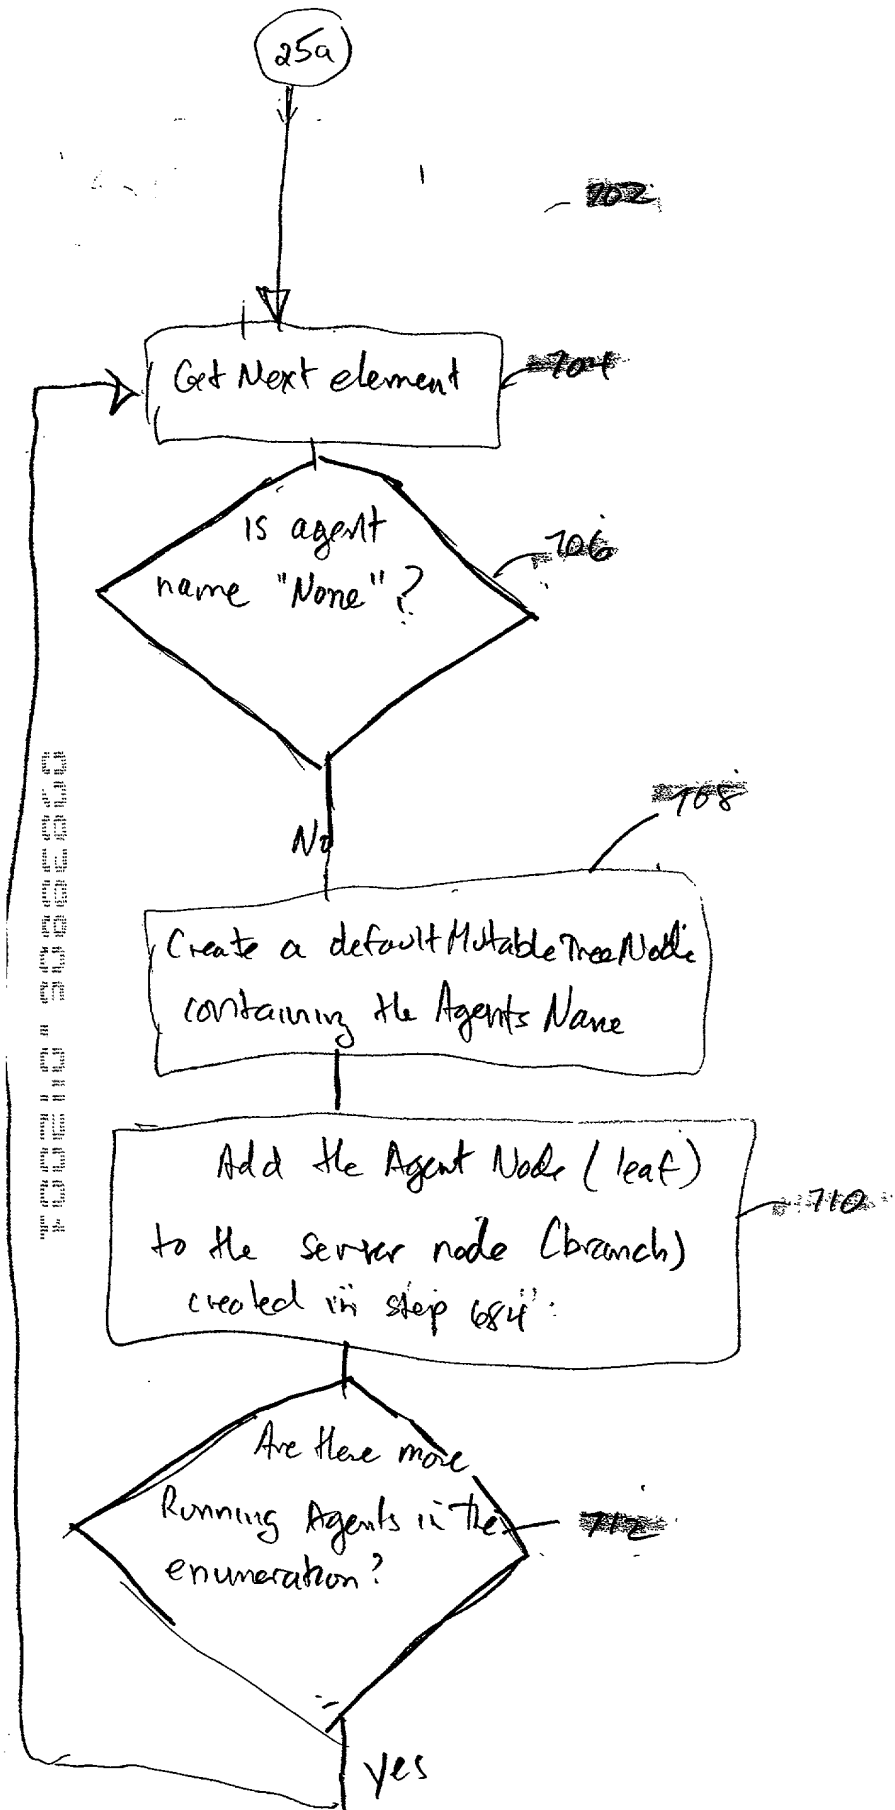 25a
702
Get Next element
704
Is agent
name "None"?
706
No
708
Create a defaultMutableTreeNode
containing the Agents Name
Add the Agent Node (leaf)
to the server node (branch)
created in step 684
710
Are there more
Running Agents in the
enumeration?
712
yes